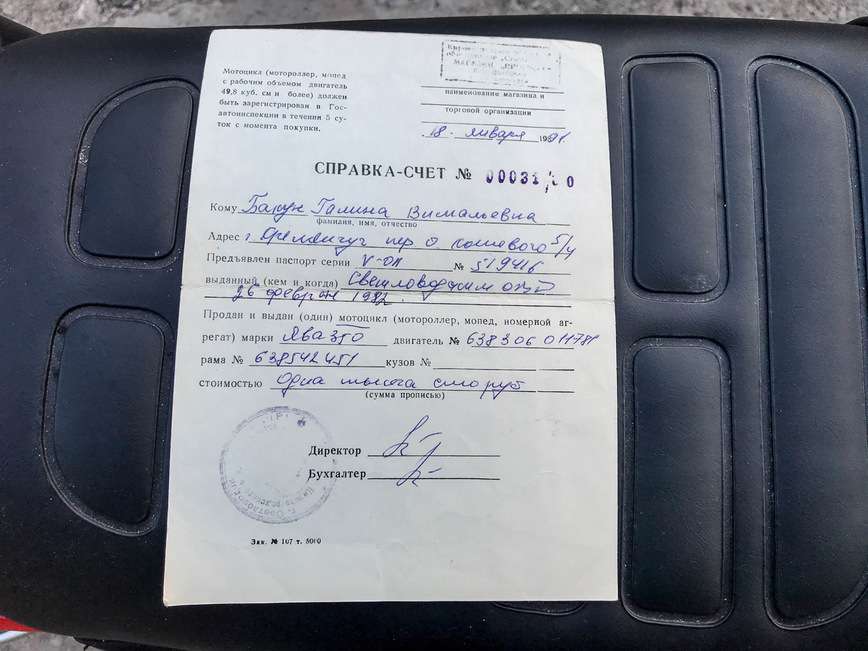 Мотоцикл (мотороллер, мопед
с рабочим объемом двигатель
49,8 куб. см и более) должен
быть зарегистрирован в Гос-
автоинспекции в течении 5 су-
ток с момента покупки.
наименование магазина и
торговой организации
18 января 1991
СПРАВКА-СЧЕТ №
Кому Галина
фамилия, имя, отчество
Адрес г.
Предъявлен паспорт серии V-ОЛ № 519416
выданный (кем и когда) Светловодским
26 февраля 1982
Продан и выдан (один) мотоцикл (мотороллер, мопед, номерной аг-
регат) марки Ява 350 двигатель № 638306011781
рама № 638542451 кузов №
стоимостью Одна тысяча сто руб
(сумма прописью)
Директор
Бухгалтер
Зак. № 107 т. 5000